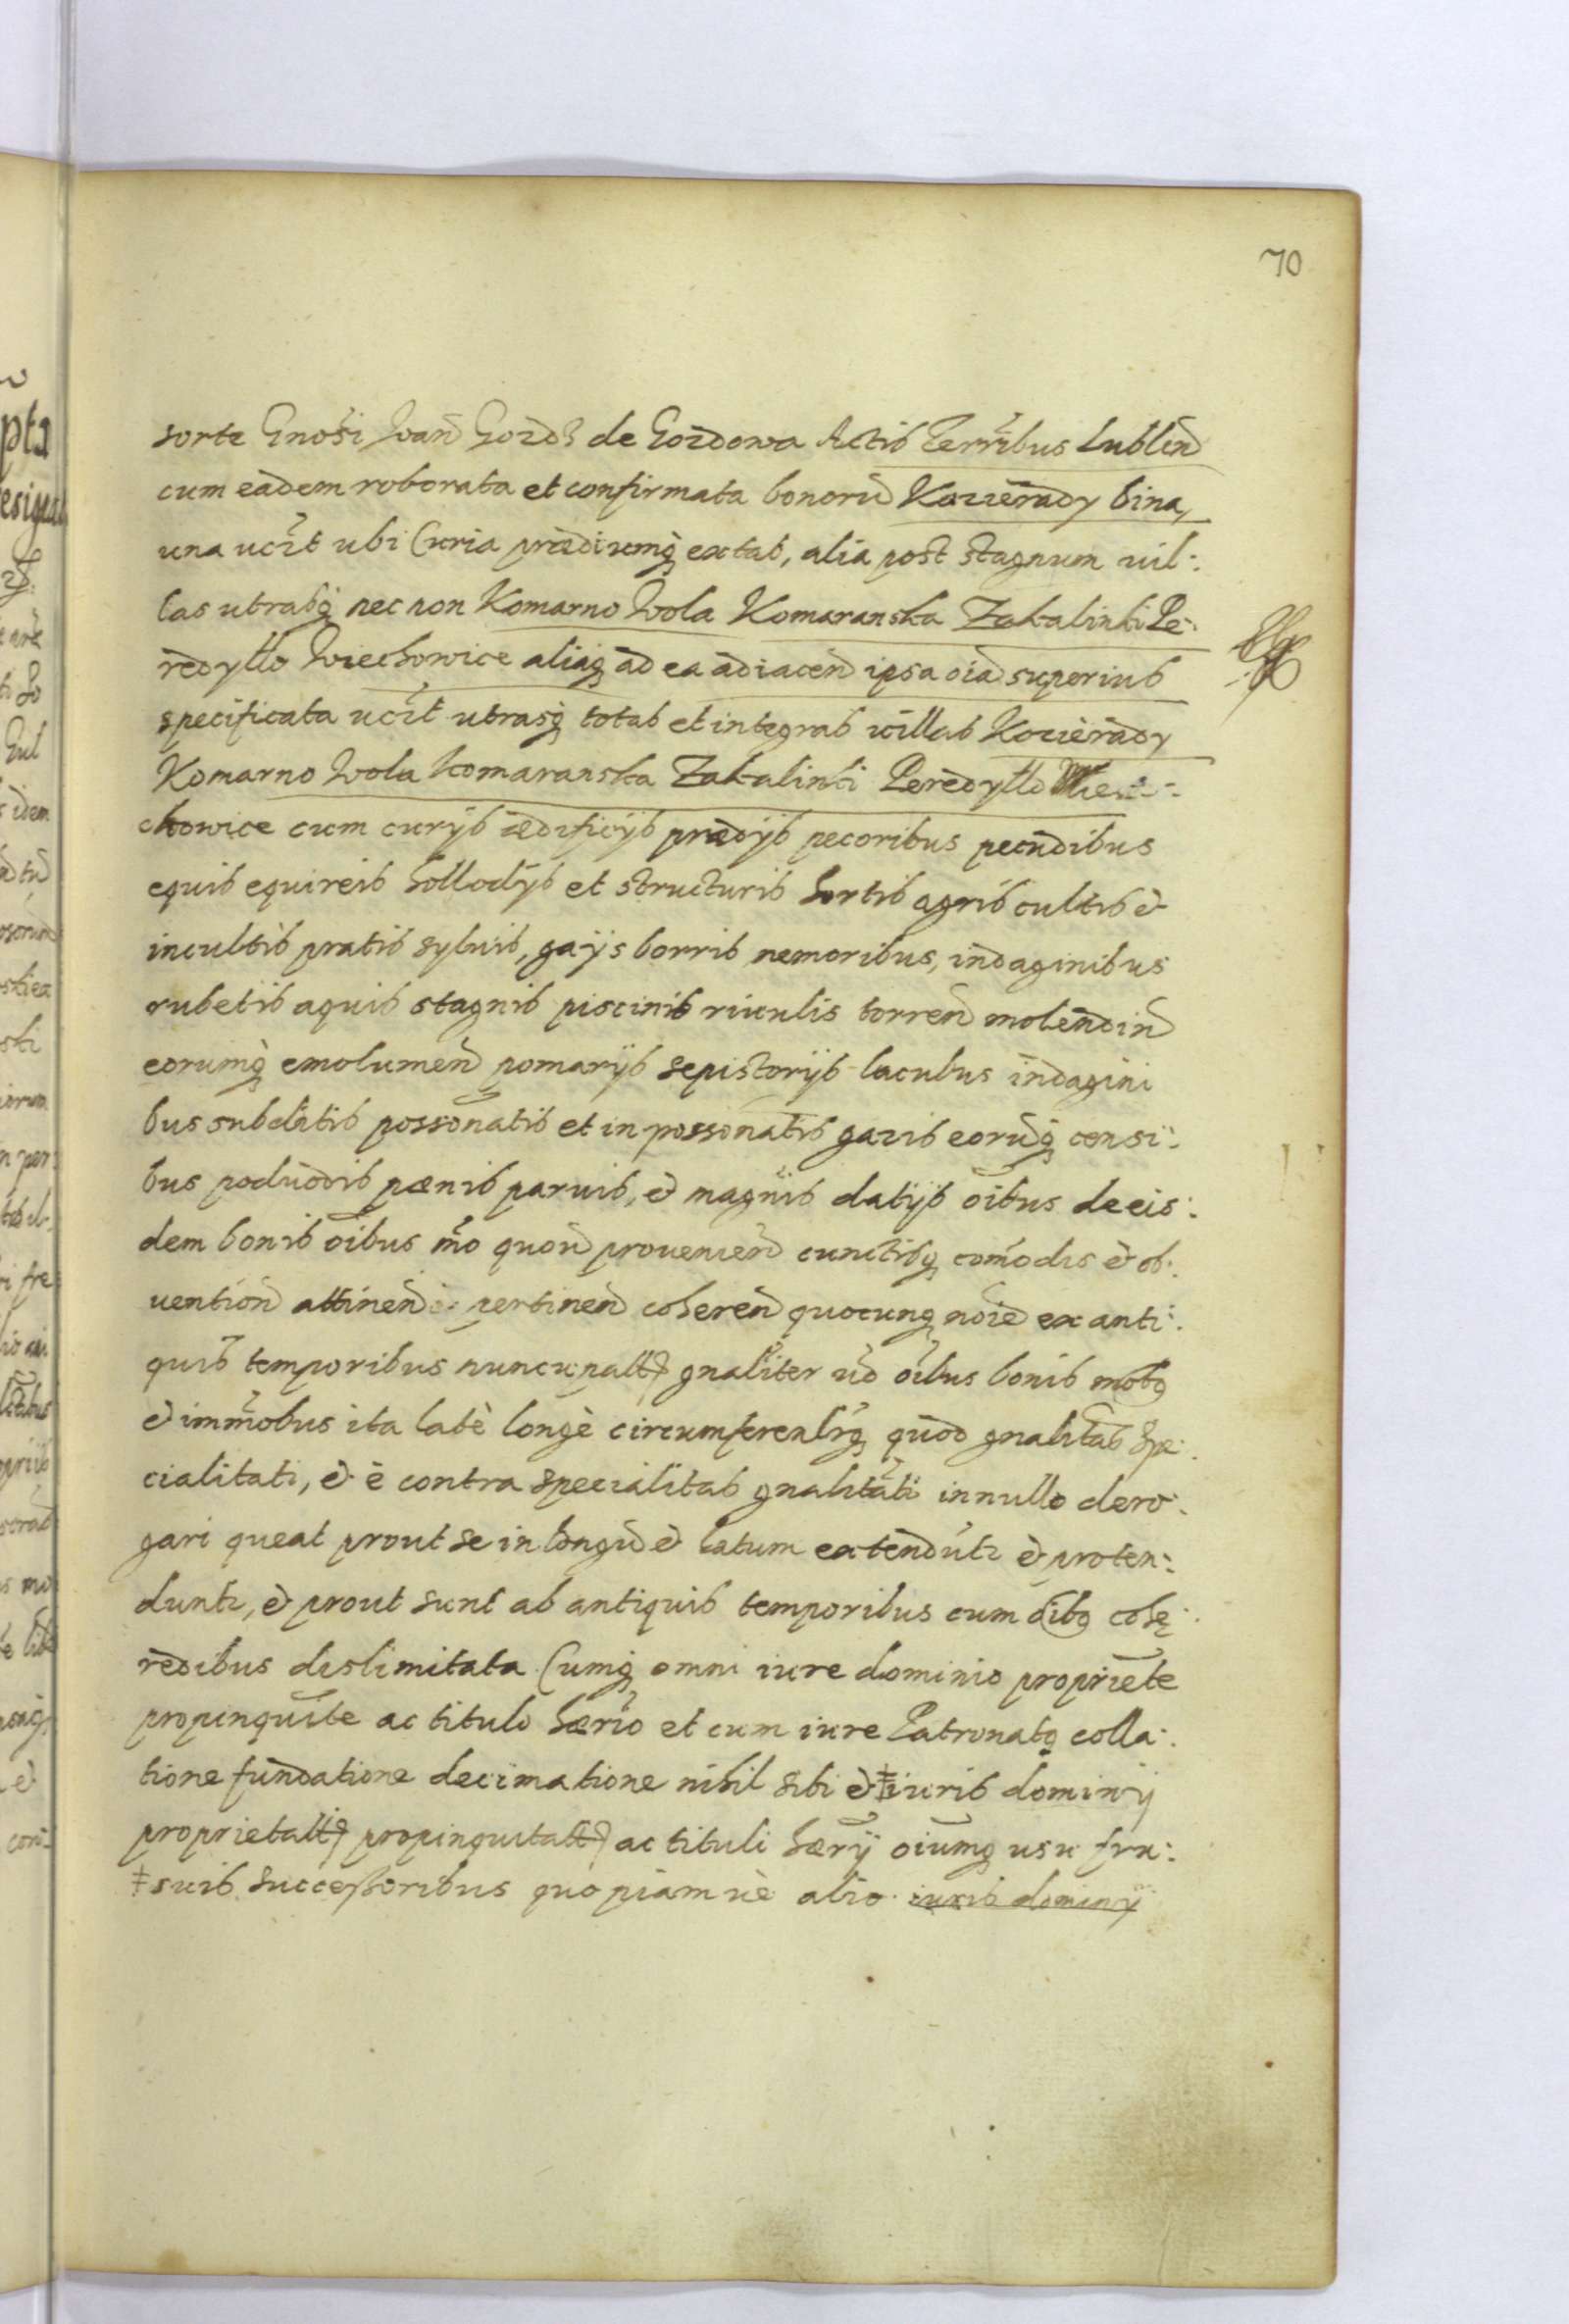 70
sorte Gnosi Joan Gozdz de Gozdowa Actis Terribus Lublin
cum eadem roborata et confirmata bonoru Kozierady bina,
una uczt ubi Curia prædiumq extat, alia post stagnum uil:
las utrasq nec non Komarno Wola Komaranska Zakalinki Pe:
redyllo Wiechowice aliaq ad ea adiacen ipsa oia superius
specificata uczt utrasq totas et integras uillas Kozierady
Komarno Wola Komaranska Zakalinki Peredyllo Wie:
chowice cum curijs ædificijs prædijs pecoribus pecudibus
equis equireis hollodijs et structuris hortis agris cultis et
incultis pratis syluis, gajis borris nemoribus, indaginibus
rubetis aquis stagnis piscinis riuulis torren molendin
eorumq emolumen pomarijs sepistorijs lacubus indagini
bus subditis possonatis et inpossonatis gazis eoruq censi:
bus poduodis pænis paruis, et magnis datijs oibus de eis:
dem bonis oibus mo quon prouenien cunctisq comodis et ob:
uention attinen et pertinen coheren quocunq noie ex anti:
quis temporibus nuncupatt gnaliter uo oibus bonis mobq
et immobus ita late longè circumferenlrq quod gnalitas spe:
cialitati, et è contra specialitas gnalitati in nullo dero:
gari queat prout se in longu et latum extendutr et proten:
duntr, et prout sunt ab antiquis temporibus cum oibq cohę:
redibus dislimitata Cumq omni iure dominio propriete
propinquite ac titulo hærio et cum iure Patronatq colla:
tione fundatione decimatione nihil sibi et ‡ iuris dominij
proprietatt propinquitatt ac tituli hærij oiumq usu fru:
‡ suis successoribus quopiam uè alio iuris dominij